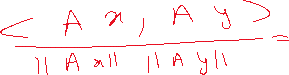 < A x , A y >
|| A x || || A y || =